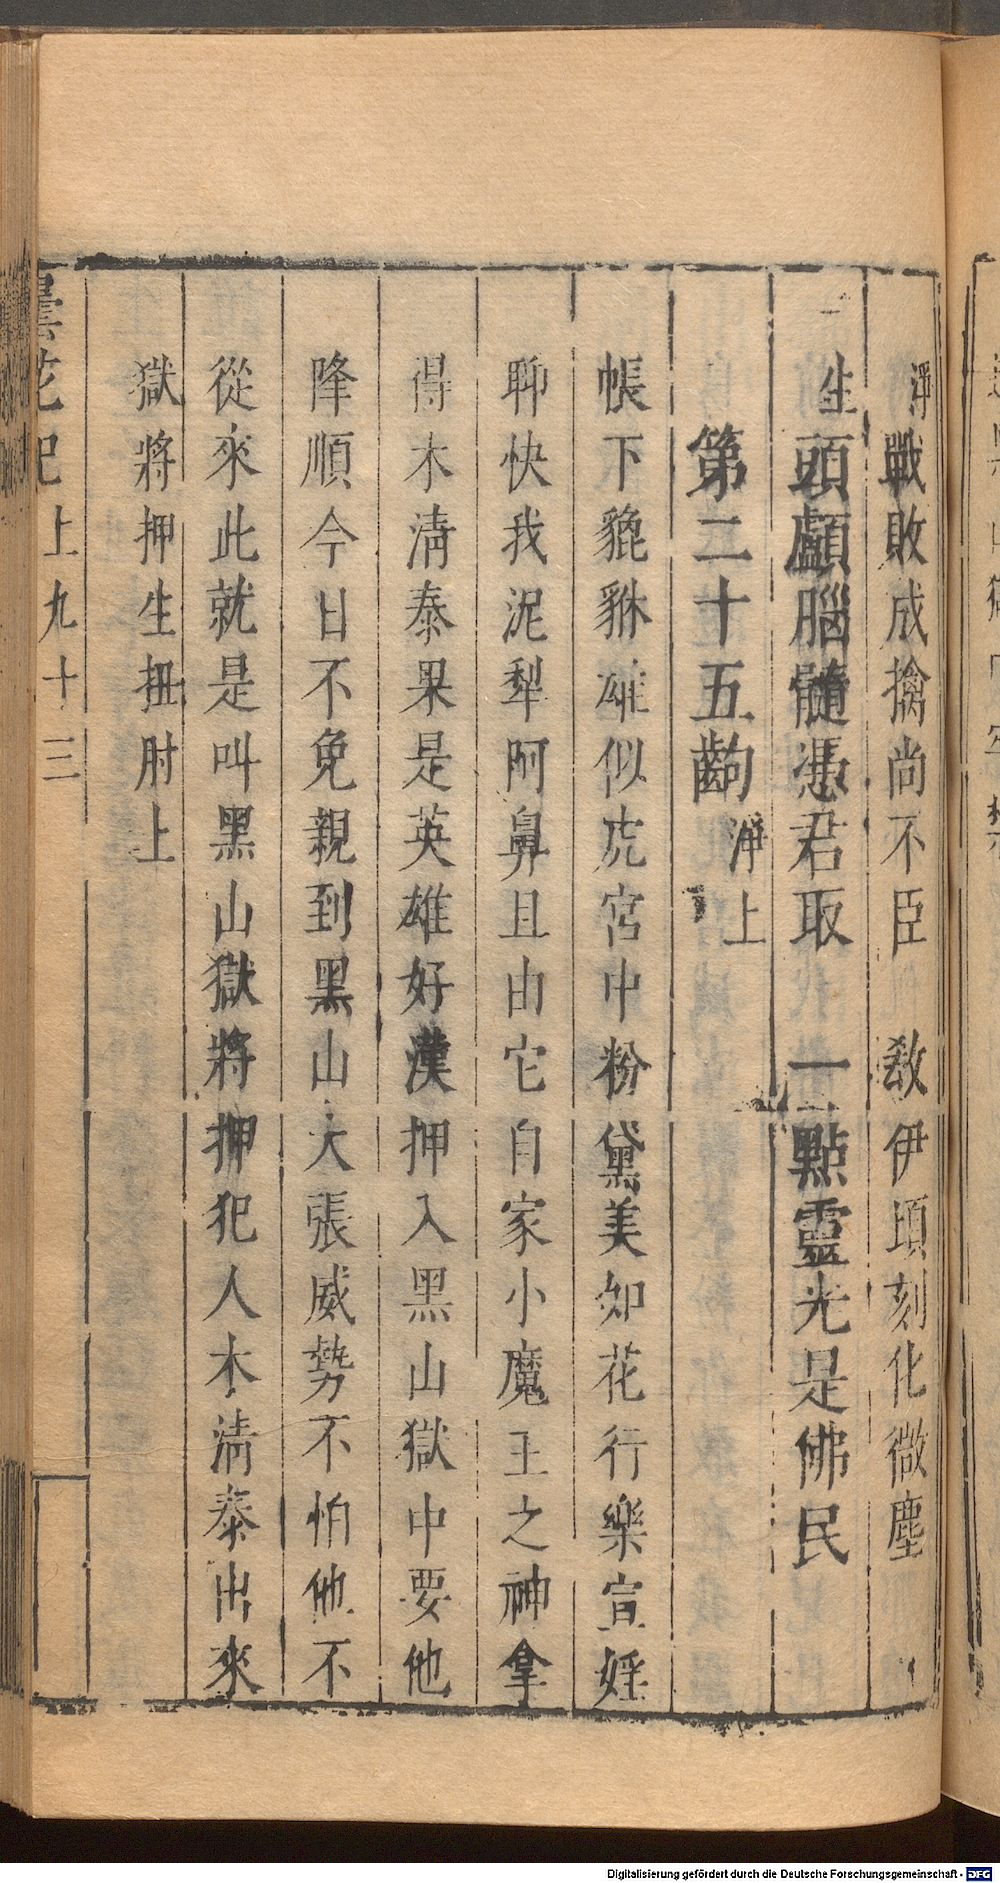 淨戰敗成擒尚不臣　敎伊頃刻化微塵
生頭顱腦髓憑君取　一點靈光是佛民
第二十五齣　淨上
帳下貔貅雄似虎宮中粉黛美如花行樂宣婬
聊快我泥犁阿鼻且由它自家小魔王之神拿
得木淸泰果是英雄好漢押入黑山獄中要他
降順今日不免親到黑山大張威勢不怕他不
從來此就是叫黑山獄將押犯人木淸泰出來
獄將押生扭肘上
曇花記　上九十三
Digitalisierung gefördert durch die Deutsche Forschungsgemeinschaft - DFG